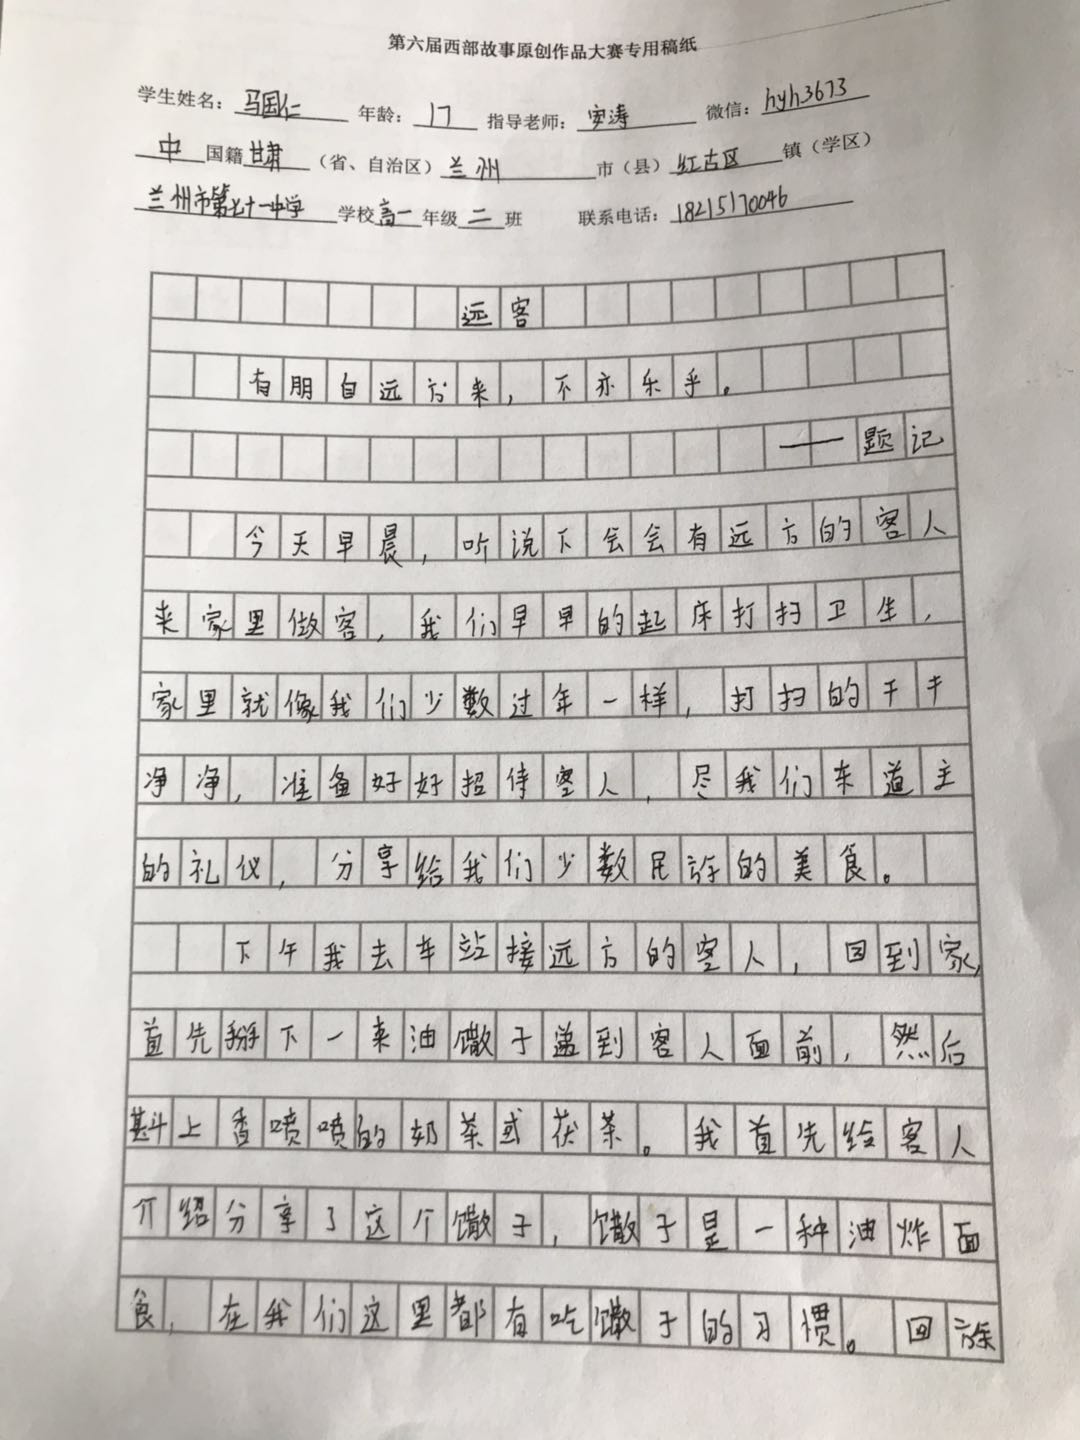 第六届西部故事原创作品大赛专用稿纸
学生姓名：马国仁 年龄：17 指导老师：安涛 微信：hyh3673
中国籍甘肃（省、自治区）兰州市（县）红古区镇（学区）
兰州市第七十一中学学校高一年级二班 联系电话：18215170046
远客
有朋自远方来，不亦乐乎。
——题记
今天早晨，听说下会会有远方的客人
来家里做客，我们早早的起床打扫卫生，
家里就像我们少数过年一样，打扫的干干
净净，准备好好招待客人，尽我们东道主
的礼仪，分享给我们少数民族的美食。
下午我去车站接远方的客人，回到家，
首先掰下一来油馓子递到客人面前，然后
斟上香喷喷的奶茶或茯茶。我首先给客人
介绍分享了这个馓子，馓子是一种油炸面
食，在我们这里都有吃馓子的习惯。回族